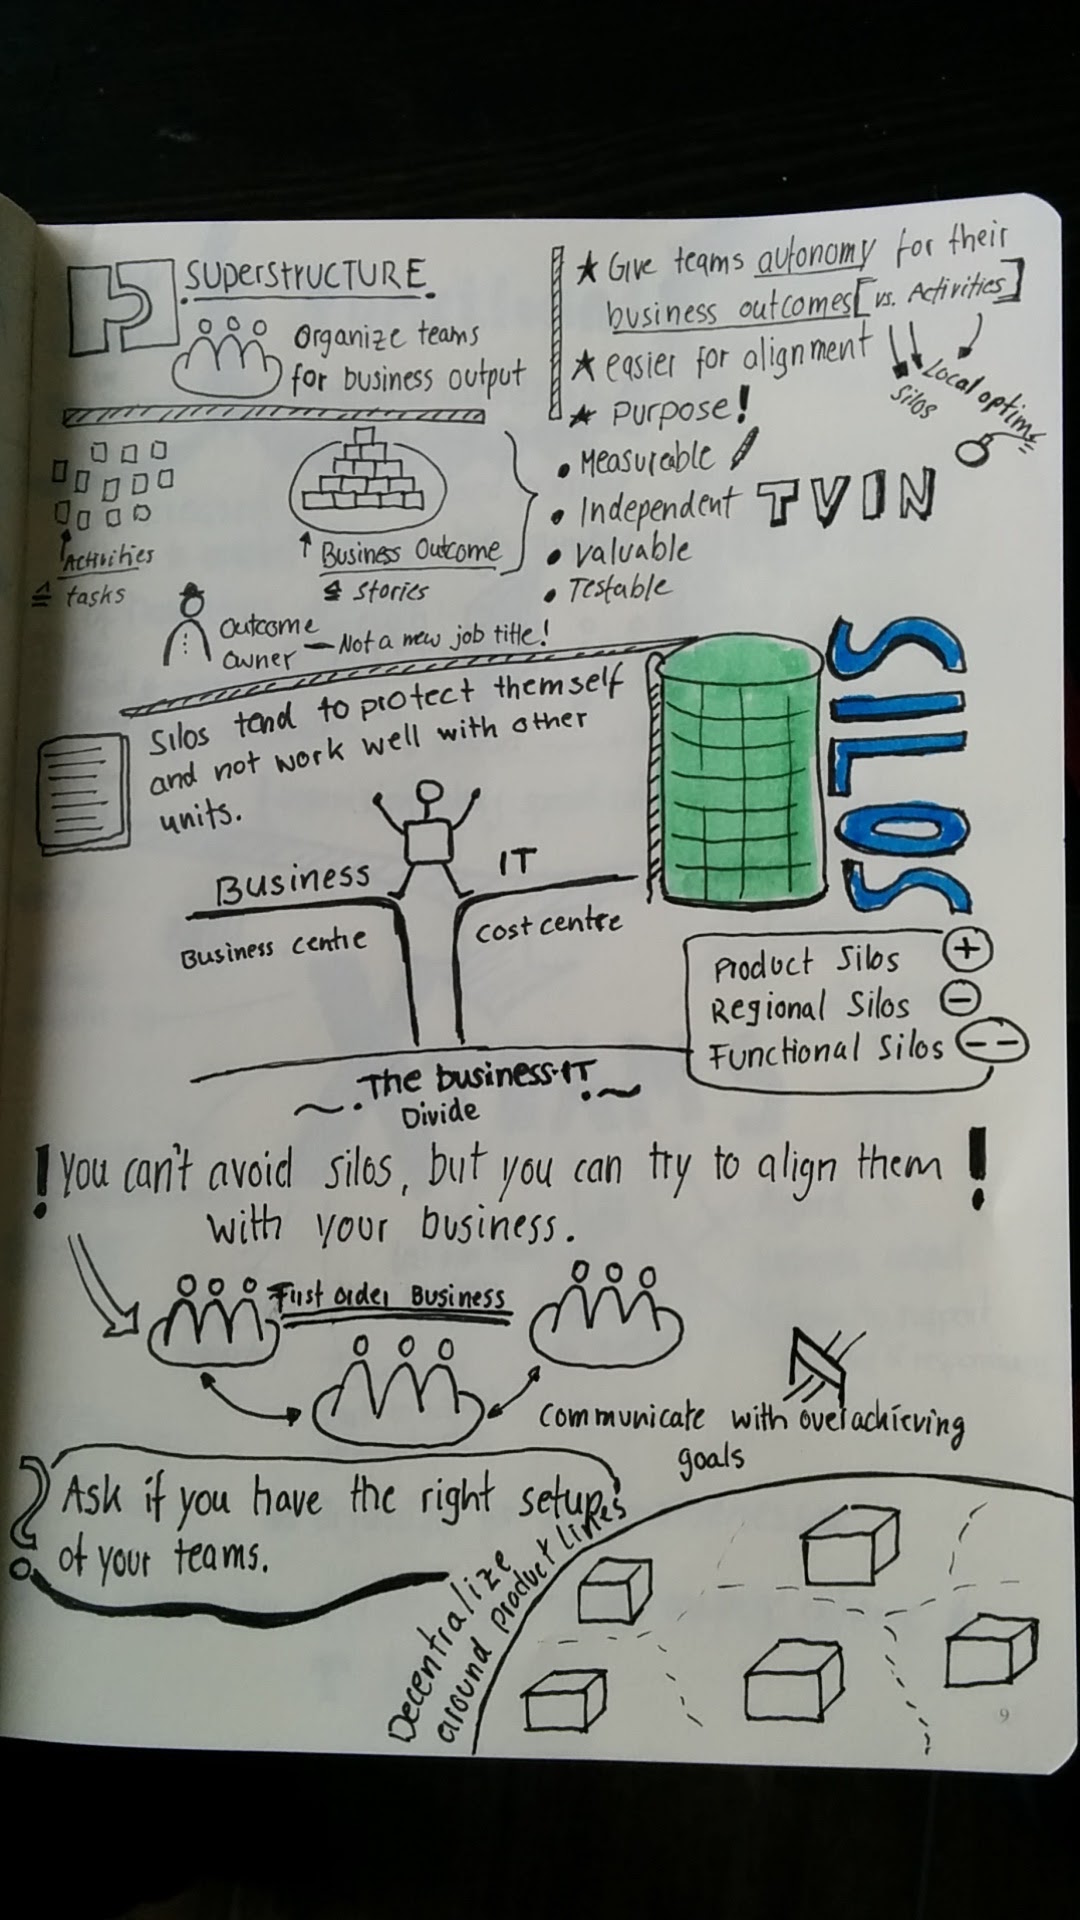 5
Superstructure
Organize teams
for business output
★ Give teams autonomy for their
business outcomes [vs. Activities]
★ easier for alignment
★ Purpose!
Silos
Local optim
• Measureable
• Independent
• Valuable
• Testable
TVIN
Activities
≙ tasks
Business Outcome
≙ Stories
Outcome
owner — Not a new job title!
Silos tend to protect themself
and not work well with other
units.
SILOS
Business
IT
Business centre
cost centre
The business-IT
Divide
Product Silos +
Regional Silos -
Functional Silos --
! You can't avoid silos, but you can try to align them !
with your business.
First order Business
communicate with overachieving
goals
? Ask if you have the right setup
of your teams.
Decentralize
around product lines
9